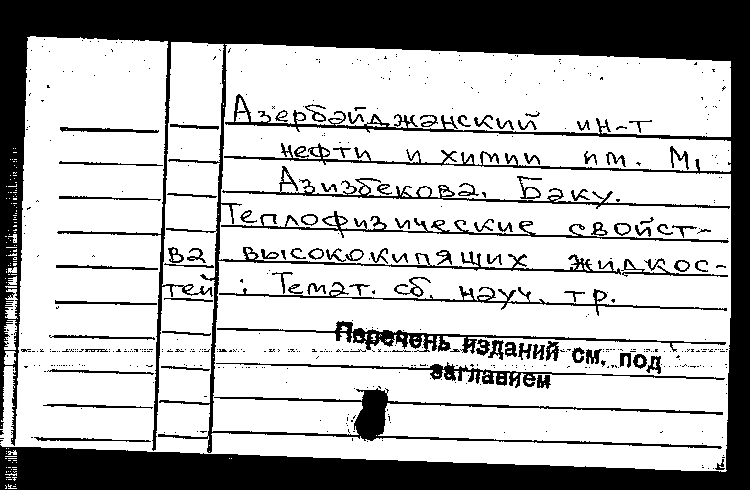 Азербайджанский ин-т
нефти и химии им. М.
Азизбекова. Баку.
Теплофизические свойст-
ва высококипящих жидкос-
тей : Темат. сб. науч. тр.
Перечень изданий см. под
заглавием